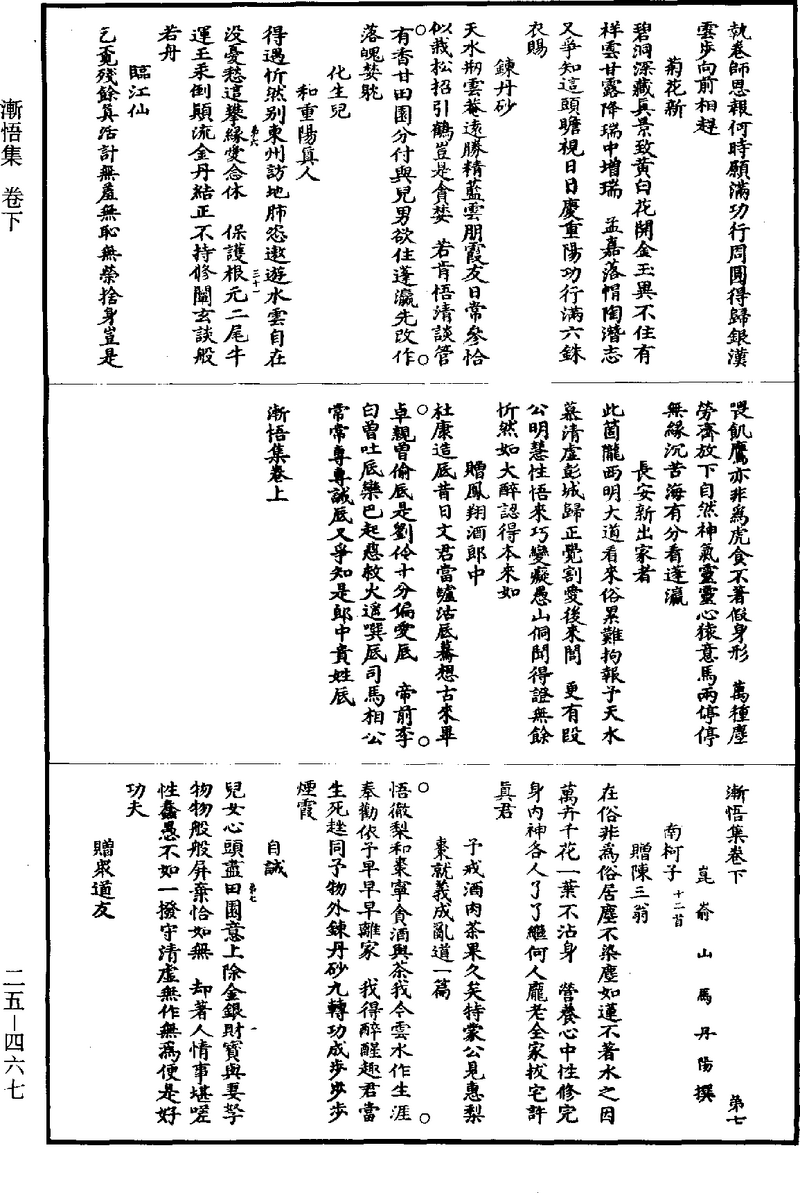 執卷師恩報何時願滿功行周圓得歸銀漢
雲步向前相趕
菊花新
碧洞深藏真景致黄白花開金玉異不住有
祥雲甘露降瑞中增瑞　孟嘉落帽陶潛志
又爭知這頭瞻視日日慶重陽功行滿六銖
衣賜
鍊丹砂
天水刱雲菴遠勝精藍雲朋霞友日常參恰
似栽松招引鶴豈是貪婪　若肯悟清談管
有香甘田園分付與兒男欲住蓬瀛先改作
落魄婪耽
化生兒
和重陽真人
得遇忻然別東州訪地肺恣遨遊水雲自在
没憂愁這攀緣愛念休　保護根元二尾牛
運玉汞倒顛流金丹結正不持修闡玄談般
若舟
臨江仙
乞覔殘餘真活計無羞無恥無榮捨身豈是
第六
三十一
喂飢鷹亦非為虎食不著假身形　萬種塵
勞齊放下自然神氣靈靈心猿意馬兩停停
無緣沉苦海有分看蓬瀛
長安新出家者
此箇隴西明大道看來俗累難拘報予天水
慕清虚彭城歸正覺割愛後來閭　更有段
公明慧性悟來巧變癡愚山侗聞得證無餘
忻然如大醉認得本來如
贈鳳翔酒郎中
杜康造底昔日文君當壚沽底驀想古來畢
卓親曾偷底是劉伶十分偏愛底　帝前李
白曾吐底欒巴起慈救火遥噀底司馬相公
常常專專誠底又爭知是郎中貴姓底
漸悟集卷上
漸悟集卷下
第七
崑崳山馬丹陽撰
南柯子　十二首
贈陳三翁
在俗非為俗居塵不染塵如蓮不著水之因
萬卉千花一葉不沾身　營養心中性修完
身内神各人了了繼何人龐老全家拔宅許
真君
予戒酒肉茶果久矣特蒙公見惠梨
棗就義成亂道一篇
悟徹梨和棗寧貪酒與茶我今雲水作生涯
奉勸依予早早早離家　我得醉醒趣君當
生死趖同予物外鍊丹砂九轉功成步步步
煙霞
自誡
兒女心頭盡田園意上除金銀財寶與妻孥
物物般般屏棄恰如無　却著人情事堪嗟
性蠢愚不如一撥守清虚無作無為便是好
功夫
贈衆道友
第七
漸悟集　卷下
二五—四六七